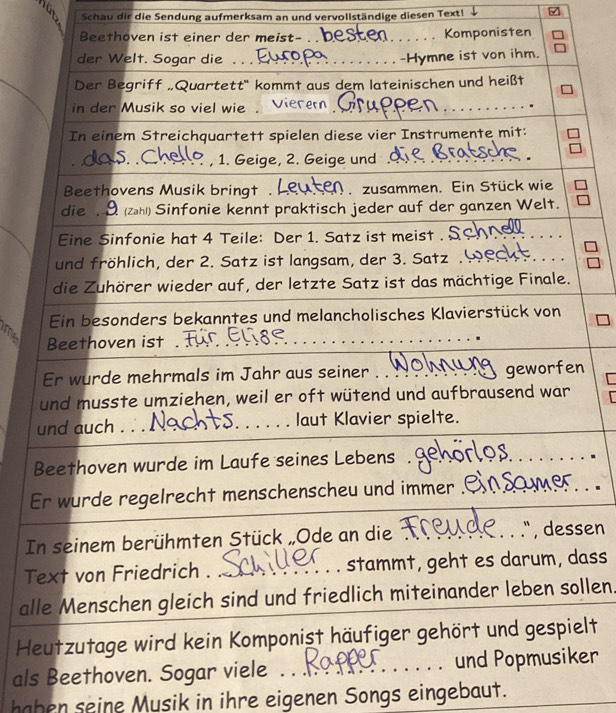 Schau dir die Sendung aufmerksam an und vervollständige diesen Text! ↓ ☑
Beethoven ist einer der meist- . . besten . . . . . . Komponisten
der Welt. Sogar die . . . Europa . . . . . . . . -Hymne ist von ihm.
Der Begriff „Quartett" kommt aus dem lateinischen und heißt
in der Musik so viel wie . vierern Gruppen . . . . . . . . . .
In einem Streichquartett spielen diese vier Instrumente mit:
. das Chello , 1. Geige, 2. Geige und . die Bratsche .
Beethovens Musik bringt . Leuten . . zusammen. Ein Stück wie
die . 9 (Zahl) Sinfonie kennt praktisch jeder auf der ganzen Welt.
Eine Sinfonie hat 4 Teile: Der 1. Satz ist meist . Schnell . . . .
und fröhlich, der 2. Satz ist langsam, der 3. Satz . weckt . . . .
die Zuhörer wieder auf, der letzte Satz ist das mächtige Finale.
Ein besonders bekanntes und melancholisches Klavierstück von
Beethoven ist . Für Elise . . . . . . . . . . . . . . . . .
Er wurde mehrmals im Jahr aus seiner . . Wohnung geworfen
und musste umziehen, weil er oft wütend und aufbrausend war
und auch . . . Nachts . . . . . . laut Klavier spielte.
Beethoven wurde im Laufe seines Lebens . gehörlos . . . . . . . .
Er wurde regelrecht menschenscheu und immer . einsamer . . .
In seinem berühmten Stück „Ode an die Freude . . .", dessen
Text von Friedrich . . Schiller . . . stammt, geht es darum, dass
alle Menschen gleich sind und friedlich miteinander leben sollen.
Heutzutage wird kein Komponist häufiger gehört und gespielt
als Beethoven. Sogar viele . . . Rapper . . . . . . . und Popmusiker
haben seine Musik in ihre eigenen Songs eingebaut.